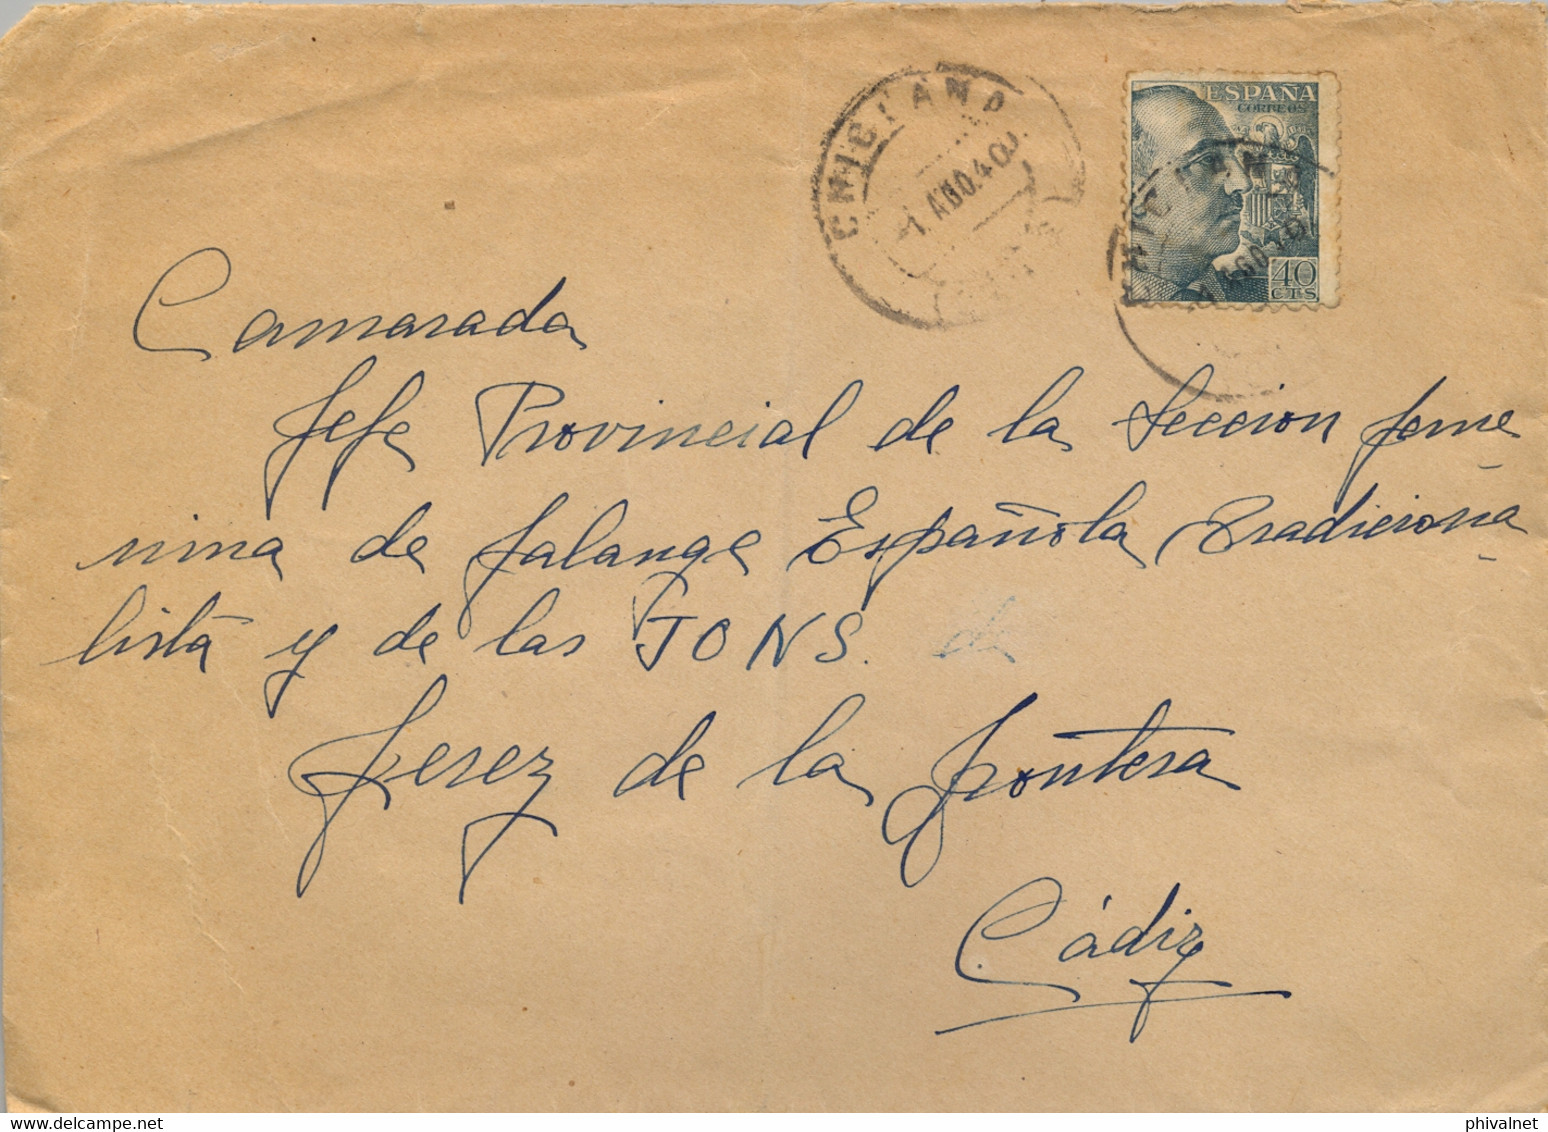 CHICLANA
1 AGO.40
ESPAÑA
CORREOS
40
CTS
Camarada
Jefe Provincial de la Seccion feme
nina de falange Española Tradiciona
lista y de las JONS. de
Jerez de la frontera
Cádiz
delcampe.net
phivalnet